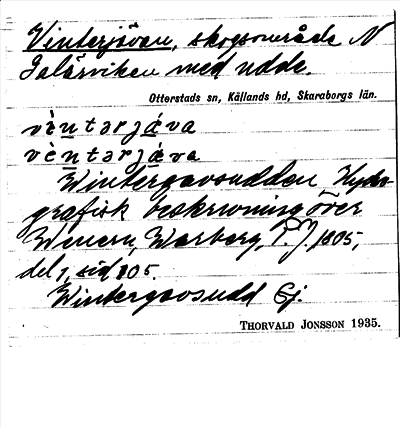 Vinterjävan, skogsområde N
Salärviken med udde.
Otterstads sn, Kållands hd, Skaraborgs län.
vìntərjǽva
vèntərjǽva
Wintergavsudden Hydro-
grafisk beskrivning över
Wenern, Warberg, P. J. 1805,
del 1, sid 105.
Wintergavsudd Gj.
THORVALD JONSSON 1935.